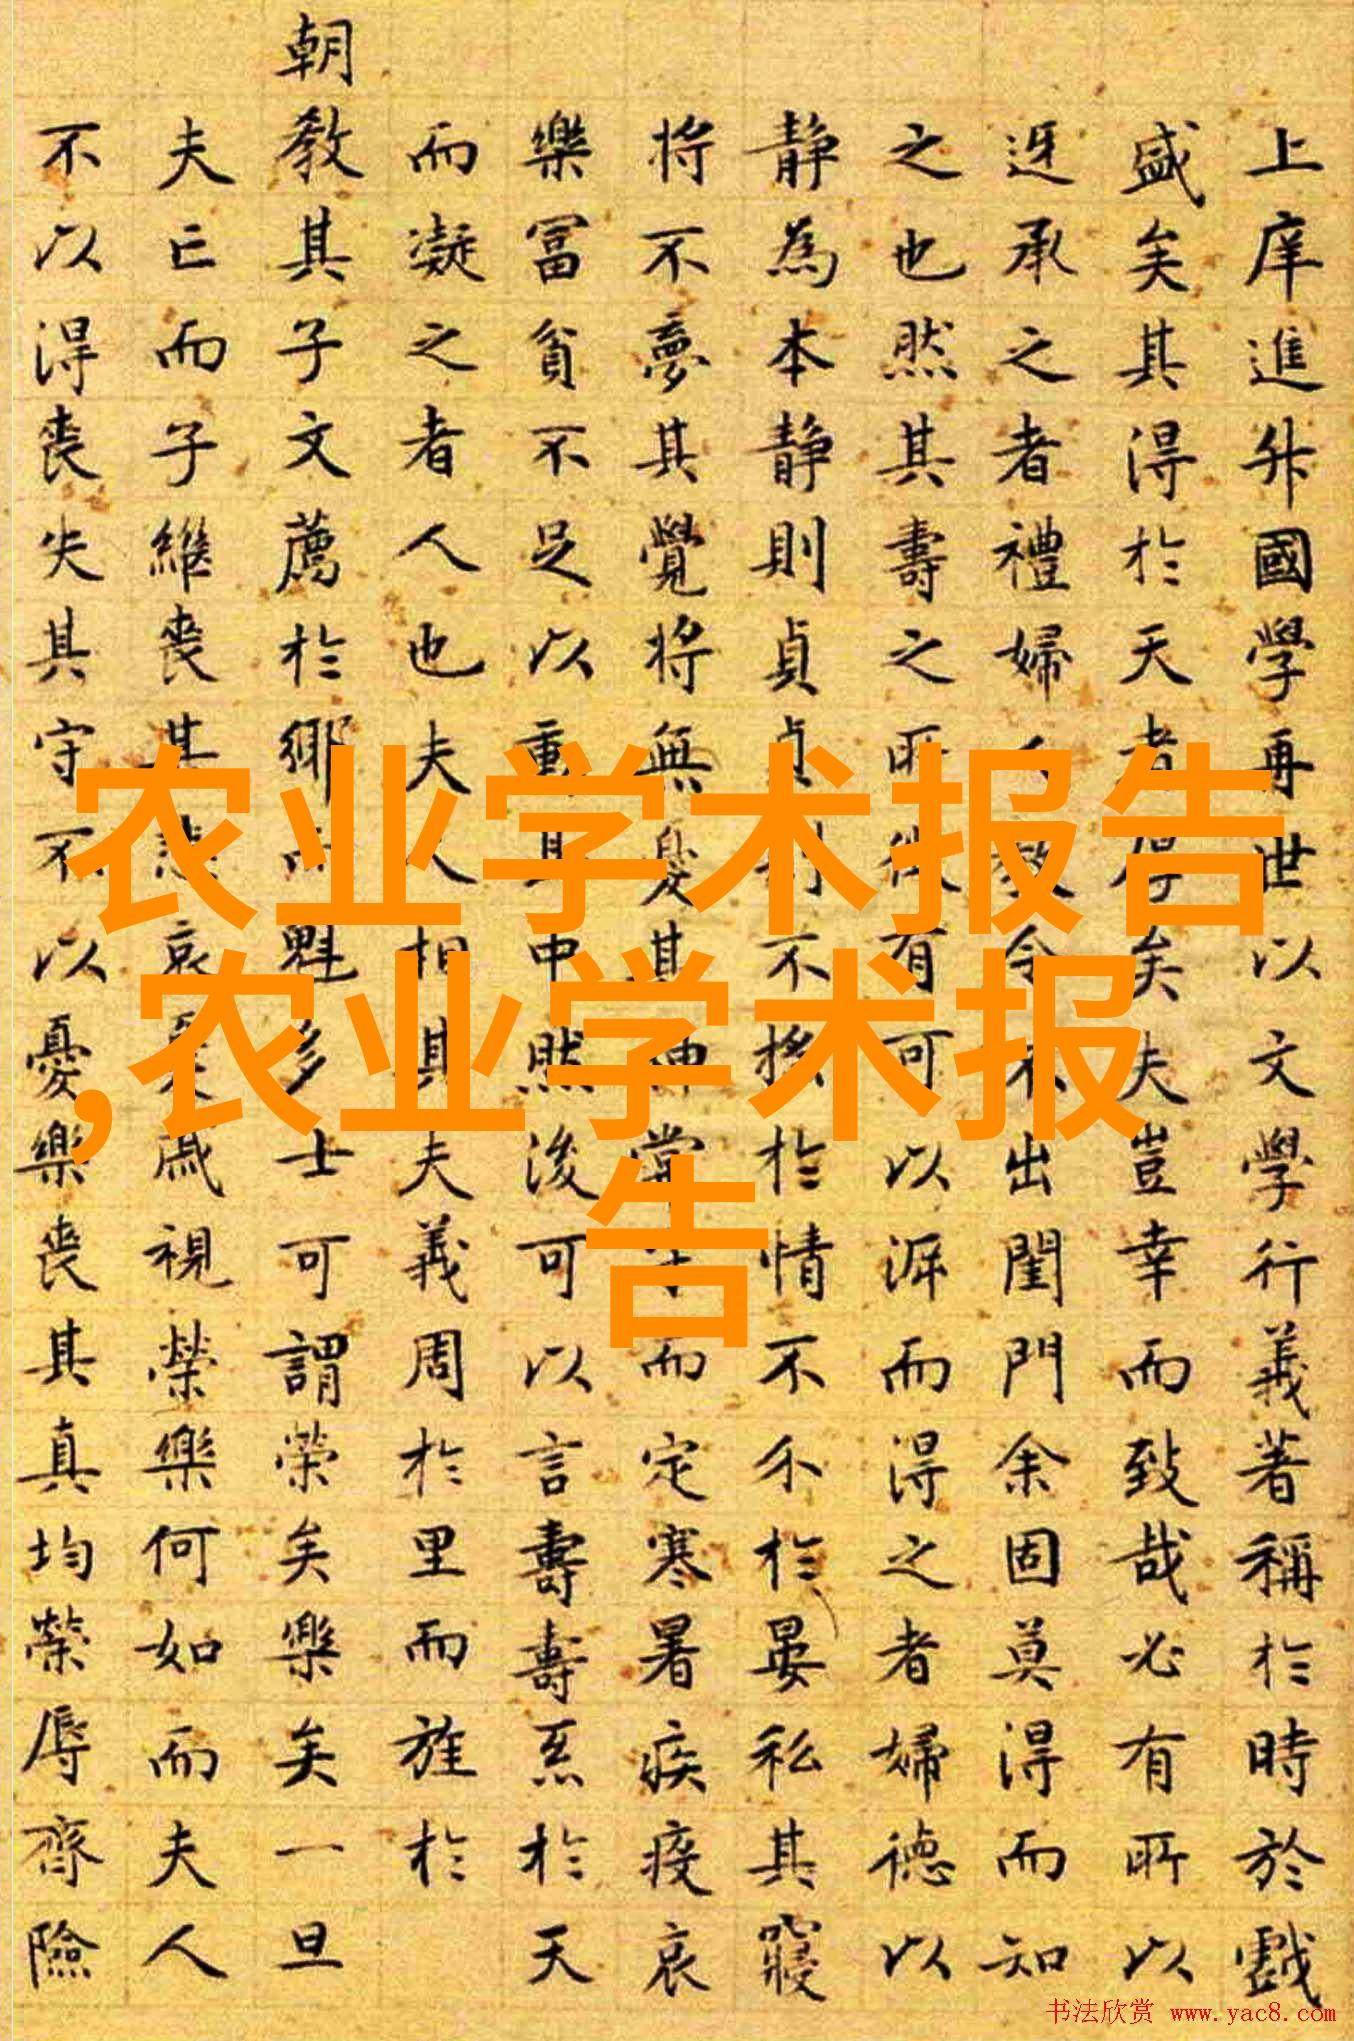 上庠進升國學再世以文學行義著稱於時於戲
盛矣其得於天者得矣夫豈幸而致哉必有所以
迓承之者禮婦人教令不出閨門余固莫得而知
之也然其壽之所徴有可以泝而得之者婦德以
静為本静則貞貞則不撓於情不介於晏私其寢
将不夢其覺将無憂其神常而定寒暑疾疫哀
樂冨貧不足以動其中然後可以言壽壽系於天
而凝之者人也夫人相其夫義周於里而旌於
朝教其子文薦於鄉而魁多士可謂荣矣樂矣一旦
夫亡而子繼喪其悲哀憂戚視榮樂何如而夫人
不以得喪失其守不以憂樂喪其真均榮辱齊險
农业学术报告
,农业学术报
告
书法欣赏 www.yac8.com